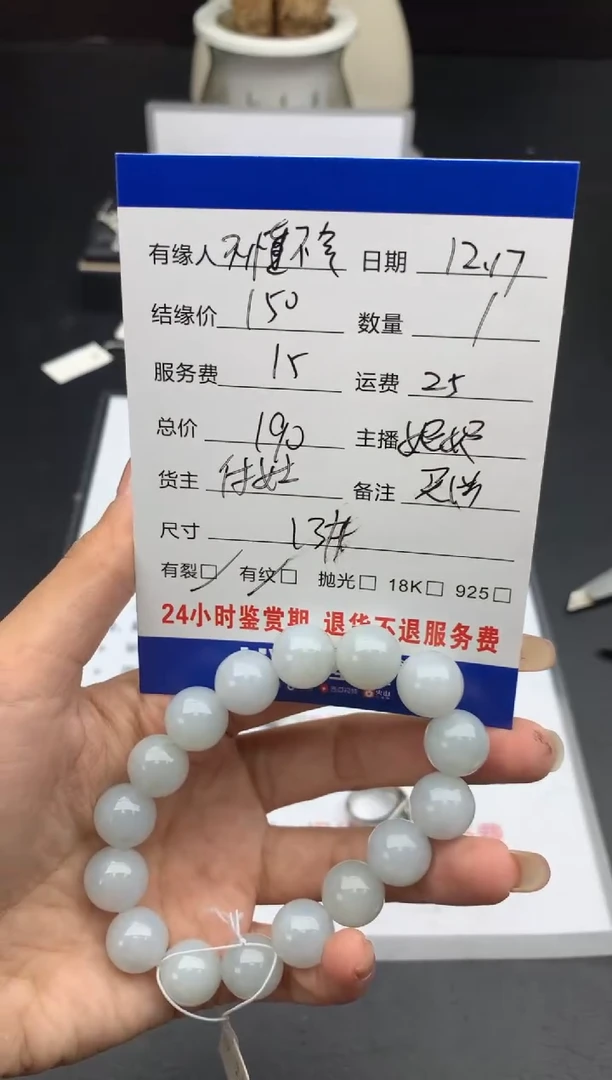 有缘人 不值不卖 日期 12.17
结缘价 150 数量 1
服务费 15 运费 25
总价 190 主播 妮妮
货主 备注
尺寸 13#
有裂□ 有纹□ 抛光□ 18K□ 925□
24小时鉴赏期 退货不退服务费